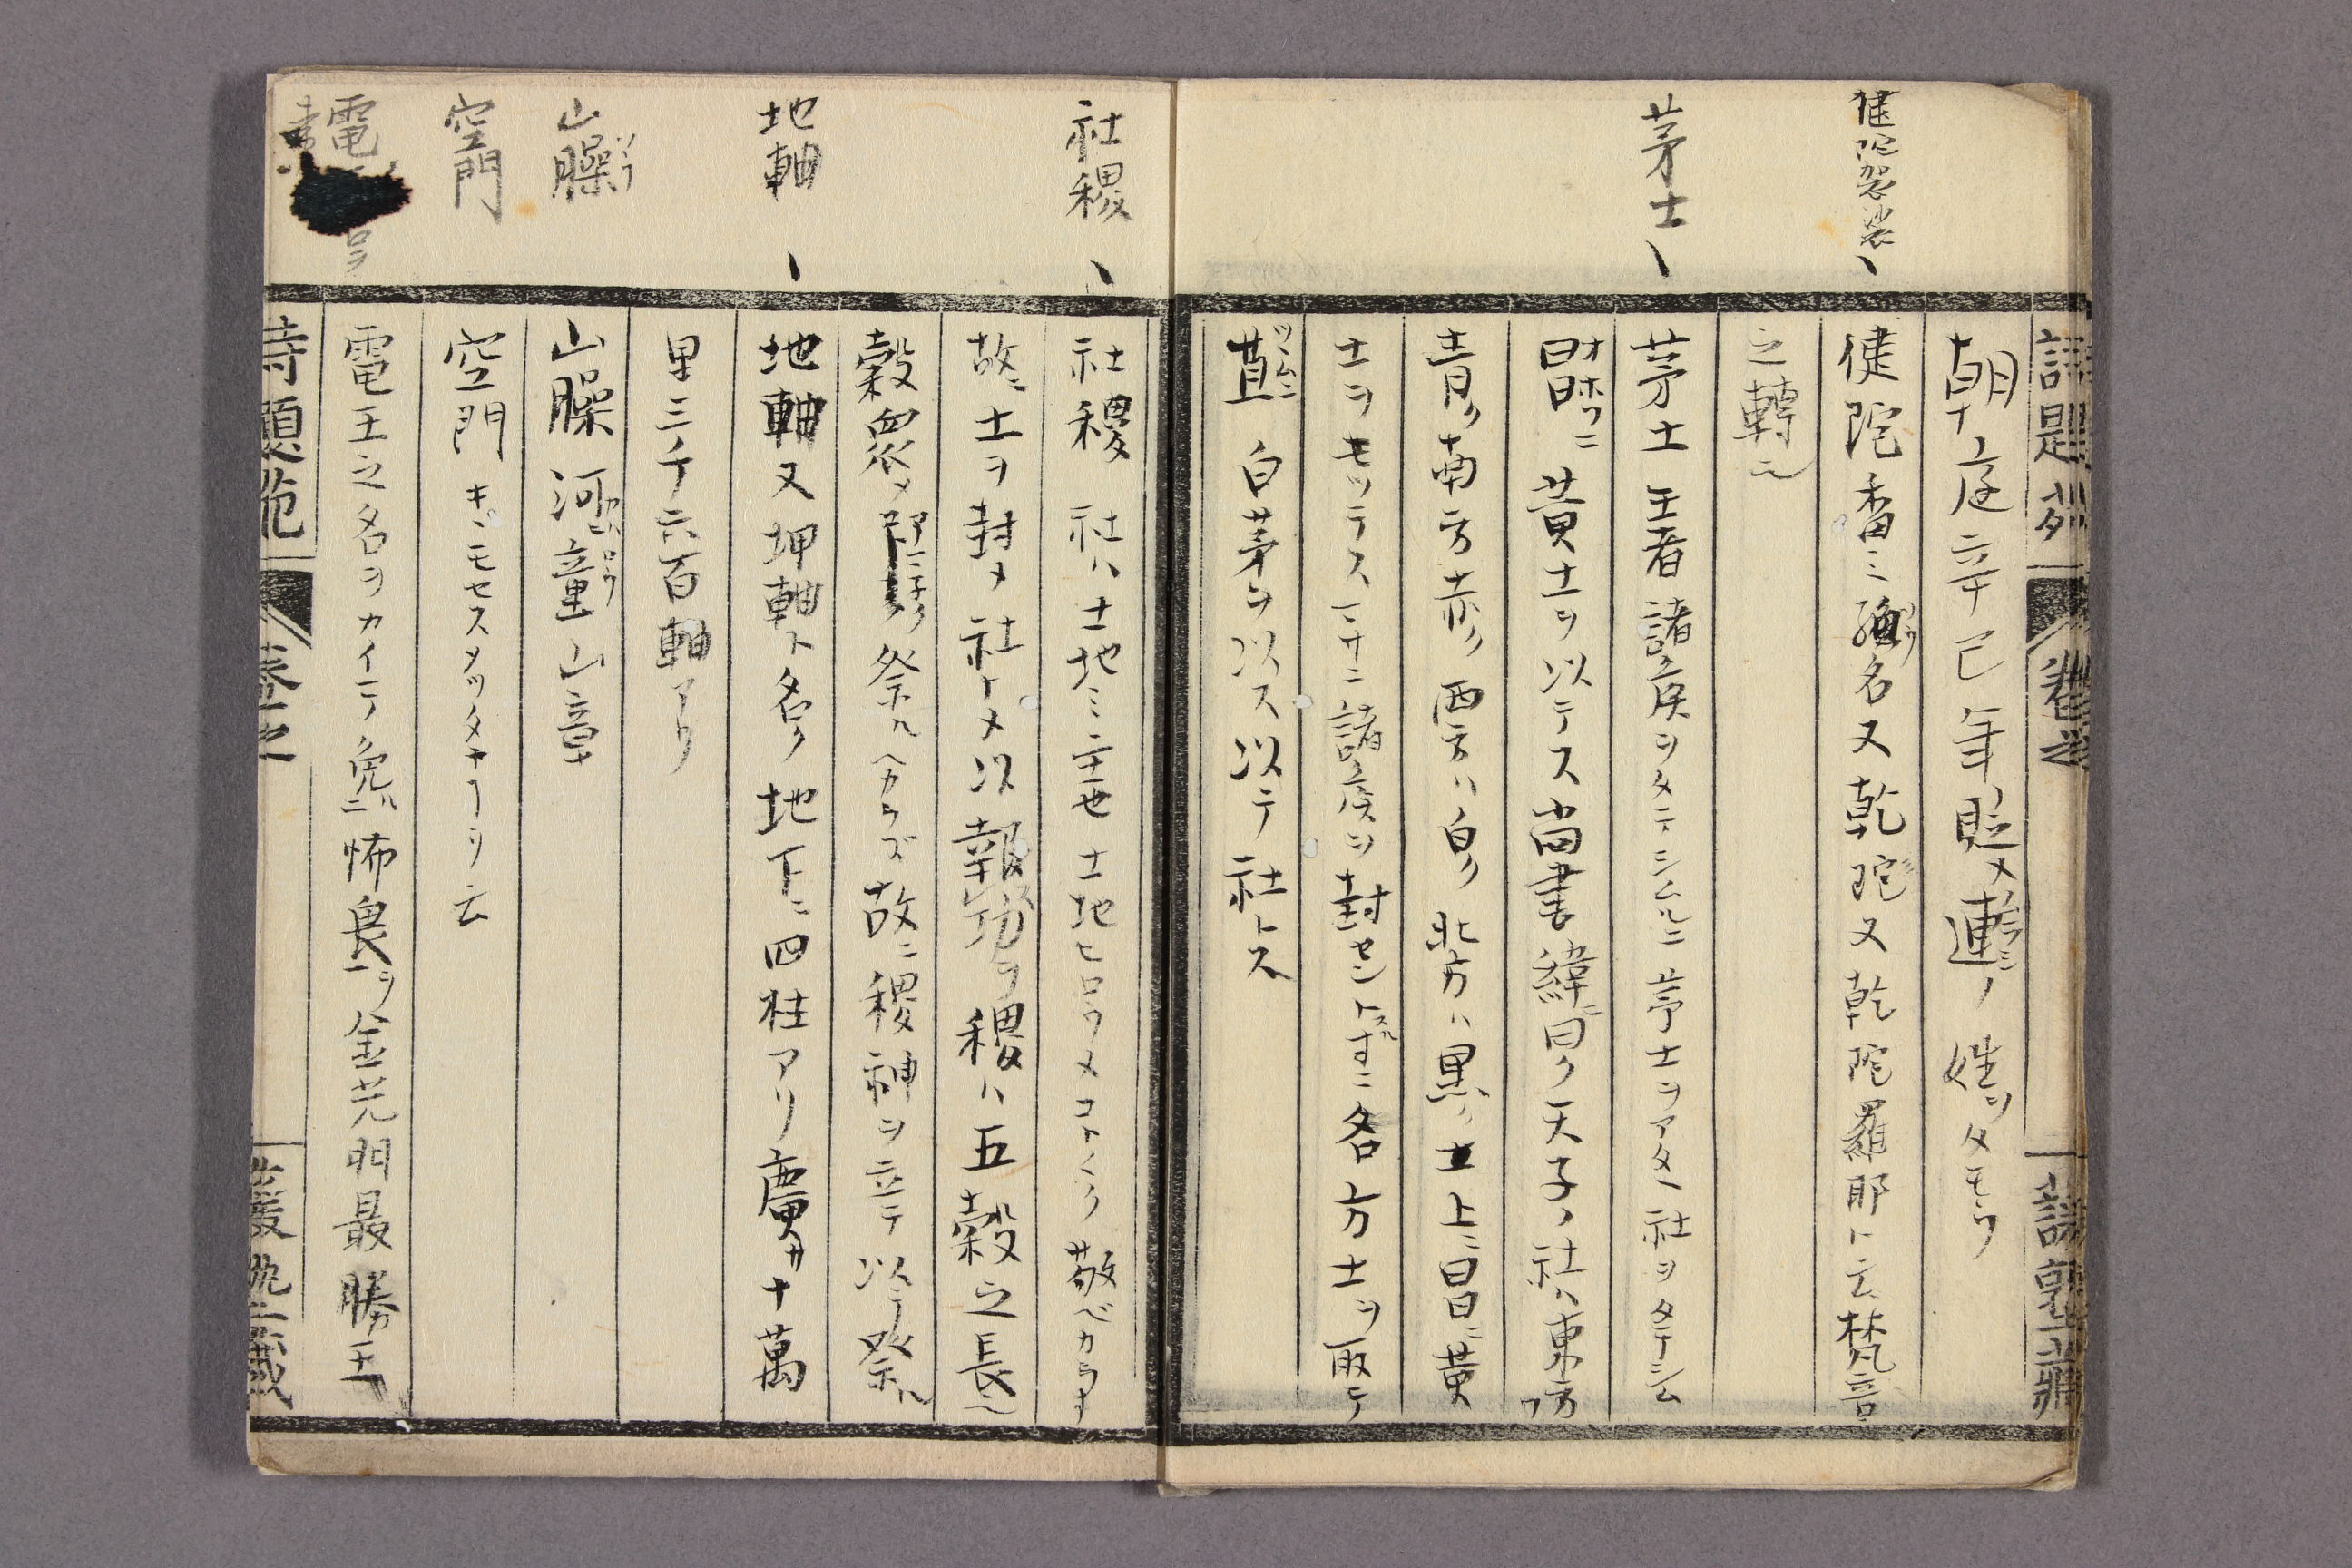 健陀袈裟、
茅土、
朝庭辛巳年貶メ連ノ姓ヲタモウ
健陀香ミ名又乾陀又乾陀羅耶ト云梵音
之轉ニ
茅土 王者諸矦ヲタテシムルニ茅土ヲアタヘ社ヲタテシム
黄土ヲ以テス尚書緯ニ曰ク天子ノ社ハ東方
青ク南方赤ク西方ハ白ク北方ハ黒ク土上ニ冒ニ黄
土ヲモツテス一サニ諸矦ヲ封セントスルニ各方土ヲ取テ
苴ツヽムニ 白茅ヲ以ス以テ社トス
社稷、
地軸、
山臊
空門
電
社稷 社ハ土地ミ主也土地ヒロウメコト〱ク敬ベカラす
故ニ土ヲ封メ社トメ以報功ヲ稷ハ五穀之長
穀衆メ祭ルヘカラズ故ニ稷神ヲ立テ以テ祭ル
地軸又坤軸ト名ク地下ニ四柱アリ廣サ十萬
里三千六百軸アリ
山臊 河童山章
空門 キンモセスメツタヤ 云
電王之名ヲカイテ免ニ怖畏ヲ金光明最勝王
詩題苑 巻之